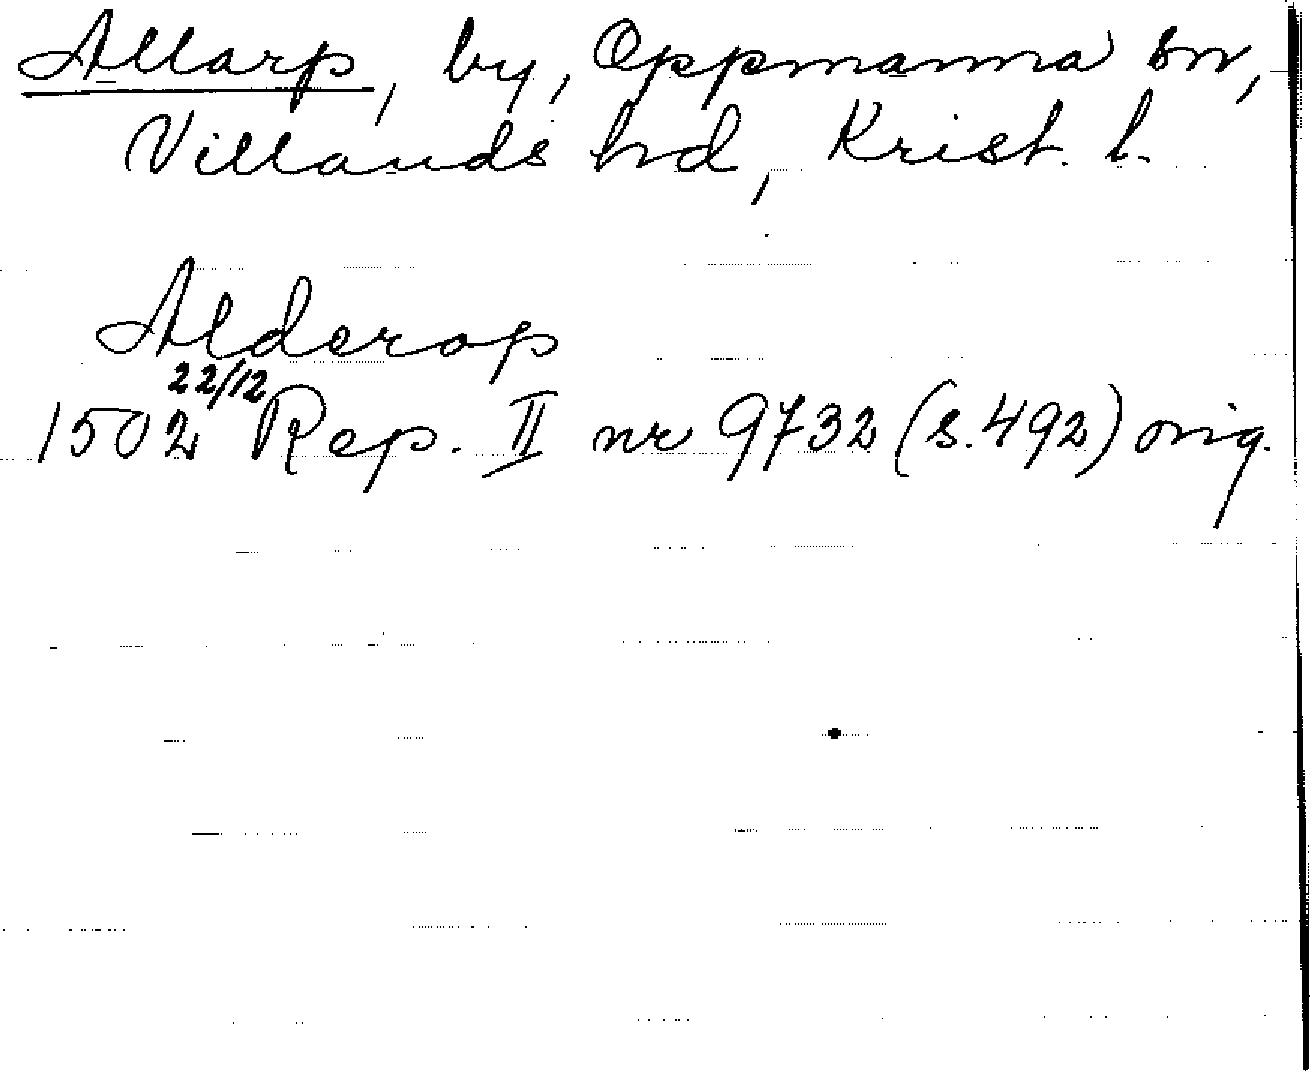 Allarp, by, Oppmanna sn,
Villands hd, Krist. l.
Alderop
22/12
1502 Rep. II nr 9732 (s. 492) orig.